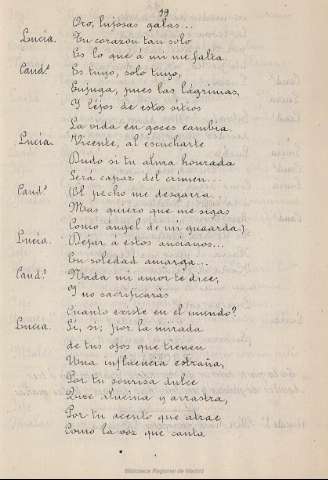 19
Oro, lujosas galas...
Lucía. Tu corazón tan solo
Es lo que á mi me falta.
Cand.º Es tuyo, solo tuyo,
Enjuga, pues las lágrimas,
Y léjos de estos sitios
La vida en goces cambia.
Lucía. Vicente, al escucharte
Dudo si tu alma honrada
Será capaz del crimen...
Cand.º (El pecho me desgarra.
Mas quiero que me sigas
Como ángel de mi guarda.)
Lucía. Dejar á estos ancianos...
En soledad amarga...
Cand.º Nada mi amor te dice,
Y no sacrificarás
Cuanto existe en el mundo?
Lucía. Sí, si; por la mirada
de tus ojos que tienen
Una influencia estraña,
Por tu sonrisa dulce
Que alucina y arrastra,
Por tu acento que atrae
Como la voz que canta
Biblioteca Regional de Madrid